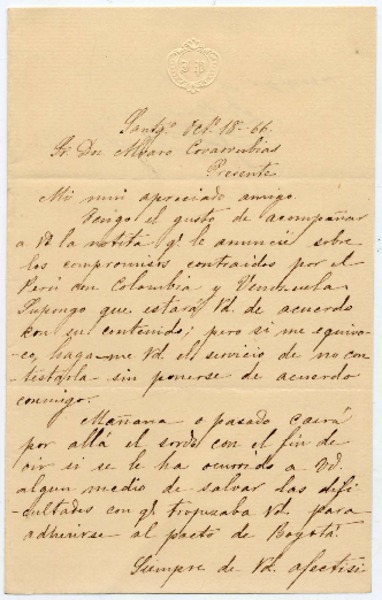 Santgo. Oct. 18-66.
Sr. Don Alvaro Covarrubias
Presente
Mi mui apreciado amigo.
Tengo el gusto de acompañar
a Vd la notita q! le anuncié sobre
los compromisos contraidos por el
Perú con Colombia y Venezuela
Supongo que estará Vd. de acuerdo
con su contenido; pero si me equivo-
-co, haga-me Vd. el servicio de no con
-testarla sin ponerse de acuerdo
conmigo.
Mañana o pasado caerá
por allá el sordo con el fin de
oir si se le ha ocurrido a Vd.
algun medio de salvar las difi
cultades con q! tropezaba Vd. para
adherirse al pacto de Bogotá.
Siempre de Vd. afectisi